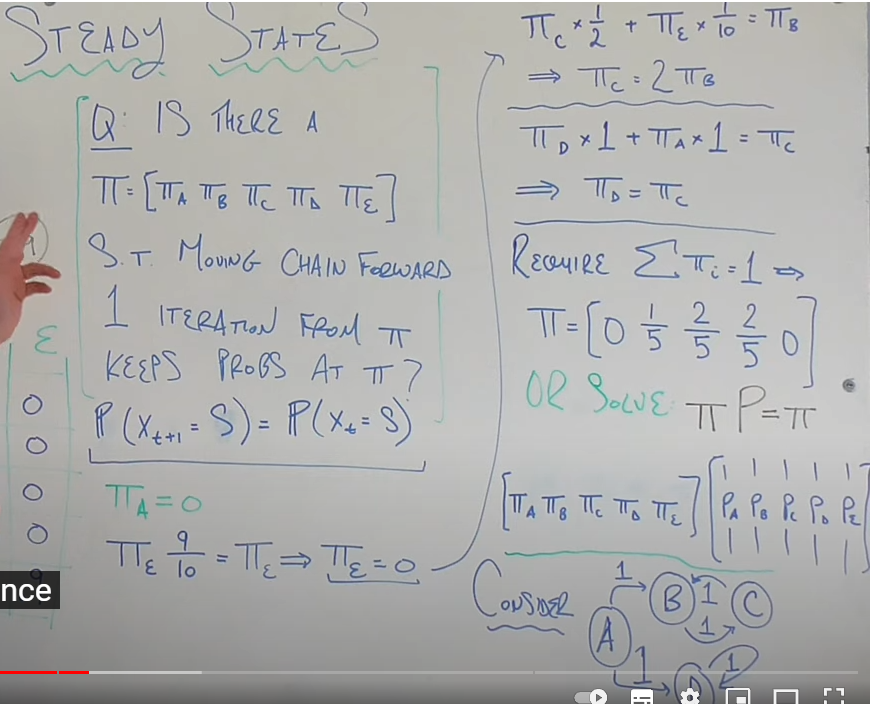 STEADY STATES
Q: IS THERE A
π = [π_A π_B π_C π_D π_E]
S.T. MOVING CHAIN FORWARD
1 ITERATION FROM π
KEEPS PROBS AT π?
P(X_{t+1} = S) = P(X_t = S)
π_A = 0
π_E 9/10 = π_E ⇒ π_E = 0
E
0
0
0
0
nce
π_C × 1/2 + π_E × 1/10 = π_B
⇒ π_C = 2π_B
π_D × 1 + π_A × 1 = π_C
⇒ π_D = π_C
REQUIRE Σπ_i = 1 ⇒
π = [0 1/5 2/5 2/5 0]
OR SOLVE: πP = π
[π_A π_B π_C π_D π_E] [P_A P_B P_C P_D P_E
CONSIDER
A
B
C
D
1
1
1
1
1